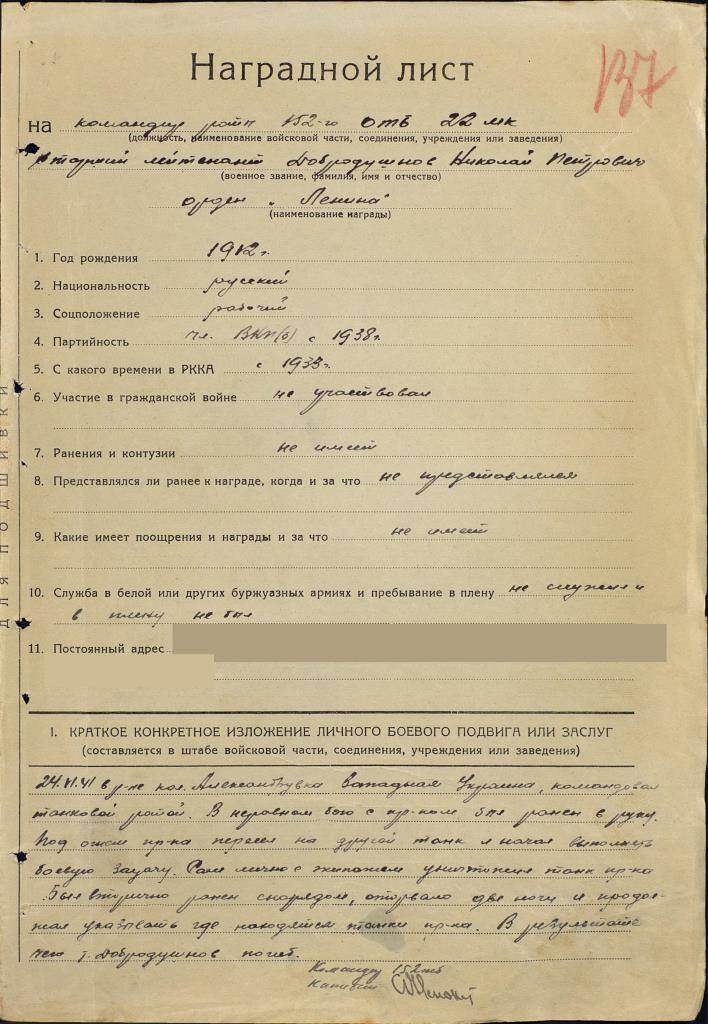 Наградной лист
137
на командир роты 152-го отб 22 мк
(должность, наименование войсковой части, соединения, учреждения или заведения)
Старший лейтенант Добродушнов Николай Петрович
(военное звание, фамилия, имя и отчество)
орден "Ленина"
(наименование награды)
1. Год рождения 1912 г.
2. Национальность русский
3. Соцположение рабочий
4. Партийность чл. ВКП(б) с 1938 г.
5. С какого времени в РККА с 1933 г.
6. Участие в гражданской войне не участвовал
7. Ранения и контузии не имеет
8. Представлялся ли ранее к награде, когда и за что не представлялся
9. Какие имеет поощрения и награды и за что не имеет
10. Служба в белой или других буржуазных армиях и пребывание в плену не служил и
в плену не был
11. Постоянный адрес
ДЛЯ ПОДШИВКИ
I. КРАТКОЕ КОНКРЕТНОЕ ИЗЛОЖЕНИЕ ЛИЧНОГО БОЕВОГО ПОДВИГА ИЛИ ЗАСЛУГ
(составляется в штабе войсковой части, соединения, учреждения или заведения)
24.VI.41 в р-не кол. Александровка Западная Украина, командовал
танковой ротой. В неровном бою с пр-ком был ранен в руку.
Под огнем пр-ка пересел на другой танк и начал выполнять
боевую задачу. Сам лично с экипажем уничтожил танк пр-ка
Был вторично ранен снарядом, оторвало две ноги и продол-
жал указывать где находятся танки пр-ка. В результате
чего т. Добродушнов погиб.
Командир 152 отб
капитан